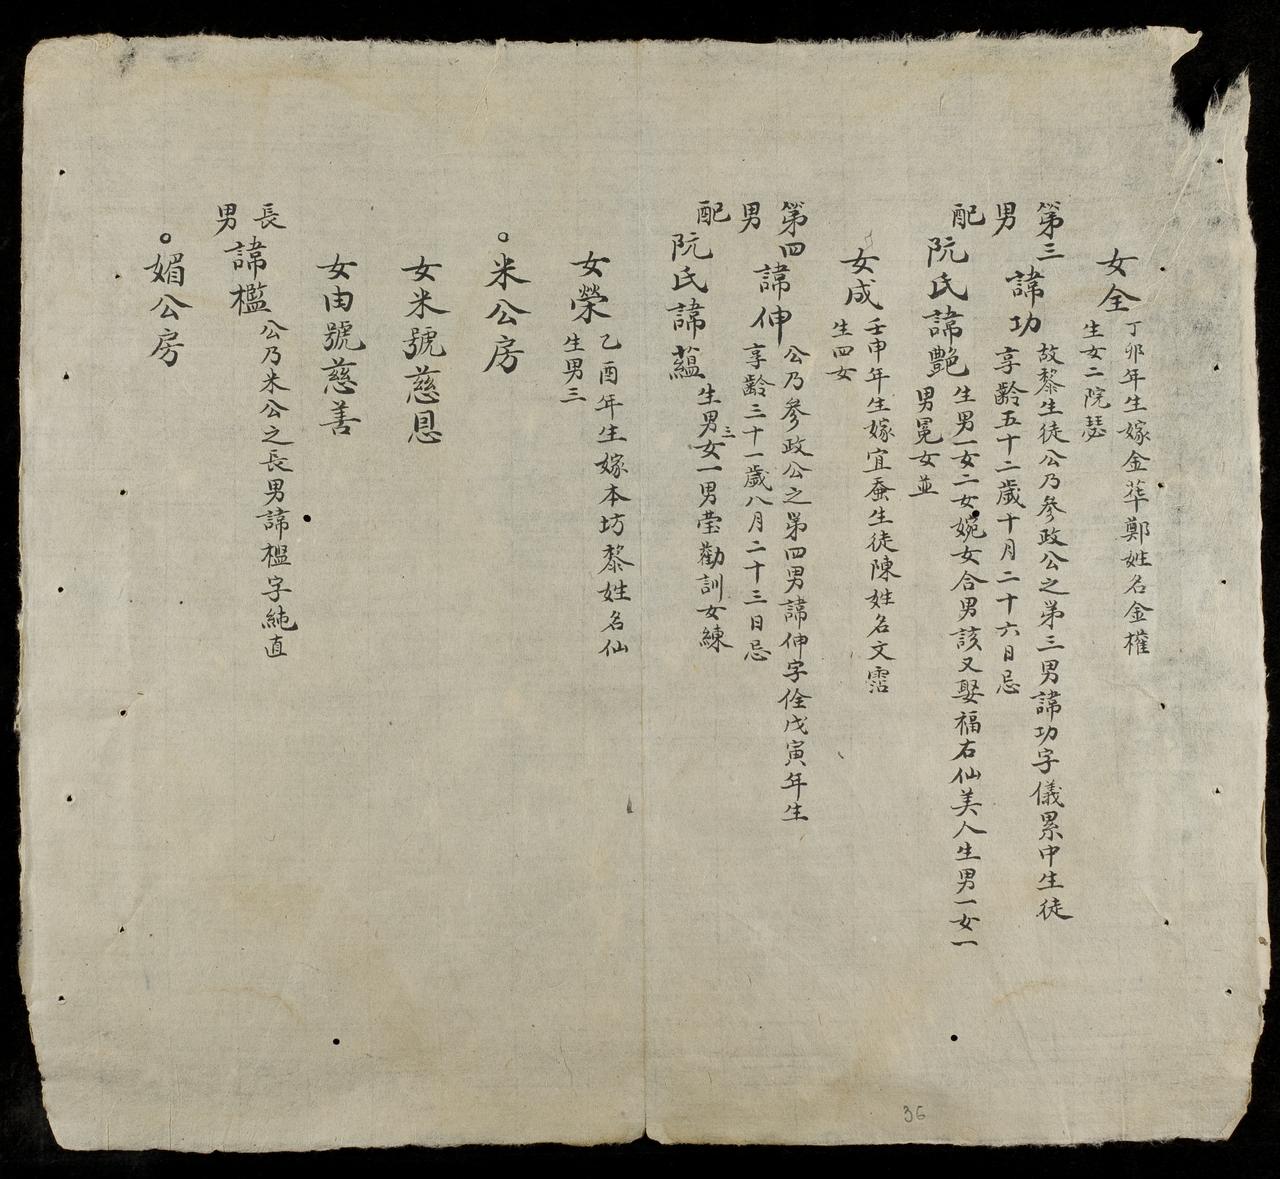 女全
丁卯年生嫁金華鄭姓名金權
生女二院瑟
第三男
諱功
故黎生徒公乃參政公之第三男諱功字儀累中生徒
享齡五十二歲十月二十六日忌
配
阮氏諱艷
生男一女二女婉女合男該又娶福右仙美人生男一女一
男冕女並
女成
壬申年生嫁宜蚕生徒陳姓名文霑
生四女
第四男
諱伸
公乃參政公之第四男諱伸字佺戊寅年生
享齡三十一歲八月二十三日忌
配
阮氏諱蘊
生男三女一男瑩勸訓女練
女榮
乙酉年生嫁本坊黎姓名仙
生男三
米公房
女米號慈恩
女由號慈善
長男
諱檻
公乃米公之長男諱榅字純直
媚公房
36